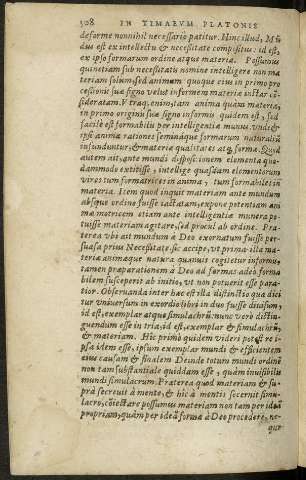 508 IN TIMAEVM PLATONIS
deforme nonnihil necessario patitur. Hinc illud, Mũ
dus est ex intellectu & necessitate compositus: id est,
ex ipso formarum ordine atque materia. Possumus
quinetiam sub necessitatis nomine intelligere non ma
teriam solum, sed animam quoque eius in primo pro
cessionis suæ signo velut informem materiæ instar cõ
sideratam. Vtraq. enim, tam anima quàm materia,
in primo originis suæ signo informis quidem est, sed
facile est formabilis per intelligentiã munus. vnde &
ipsi animæ rationes seminales formarum naturaliũ
infunduntur, & materiæ qualitates atq. formæ. Quod
autem ait, ante mundi dispositionem elementa quo-
dammodo extitisse, intellige quasdam elementorum
vires tum formatrices in anima, tum formabiles in
materia. Item quod inquit materiam ante mundum
absque ordine fuisse iactatam, expone potentiam ani
mæ motricem etiam ante intelligentiæ munera po-
tuisse materiam agitare, sed procul ab ordine. Præ
terea vbi ait mundum à Deo exornatum fuisse per-
suasa prius Necessitate, sic accipe, vt prima illa ma-
teriæ animæque natura quamuis cogitetur informis,
tamen præparationem à Deo ad formas adeò forma
bilem susceperit ab initio, vt non potuerit esse para-
tior. Obseruanda inter hæc est illa distinctio qua dici
tur vniuersum in exordio libri in duo fuisse diuisum,
id est, exemplar atque simulachrũ: nunc verò distin-
guendum esse in tria, id est, exemplar & simulachrũ,
& materiam. Hic primò quidem videri potest re i-
psa idem esse, ipsum exemplar mundi & efficientem
eius causam & finalem. Deinde totum mundi ordinẽ
non tam substantiale quiddam esse, quàm inuisibilis
mundi simulacrum. Præterea quod materiam & su-
prà secreuit à mente, & hîc à mentis secernit simu-
lacro, cõiectare possumus materiam non tam per ideã
propriam, quàm per ideã formæ à Deo procedere, ne-
qur